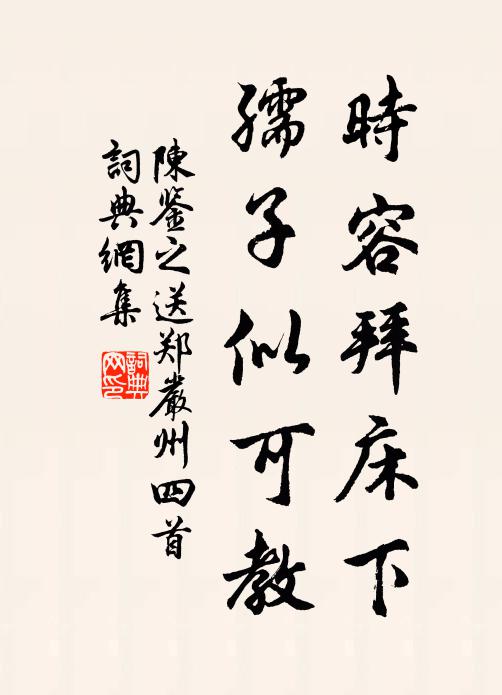 時容拜床下
孺子似可教
陳鉴之送郑嚴州四首
詞典網集
詞典網印